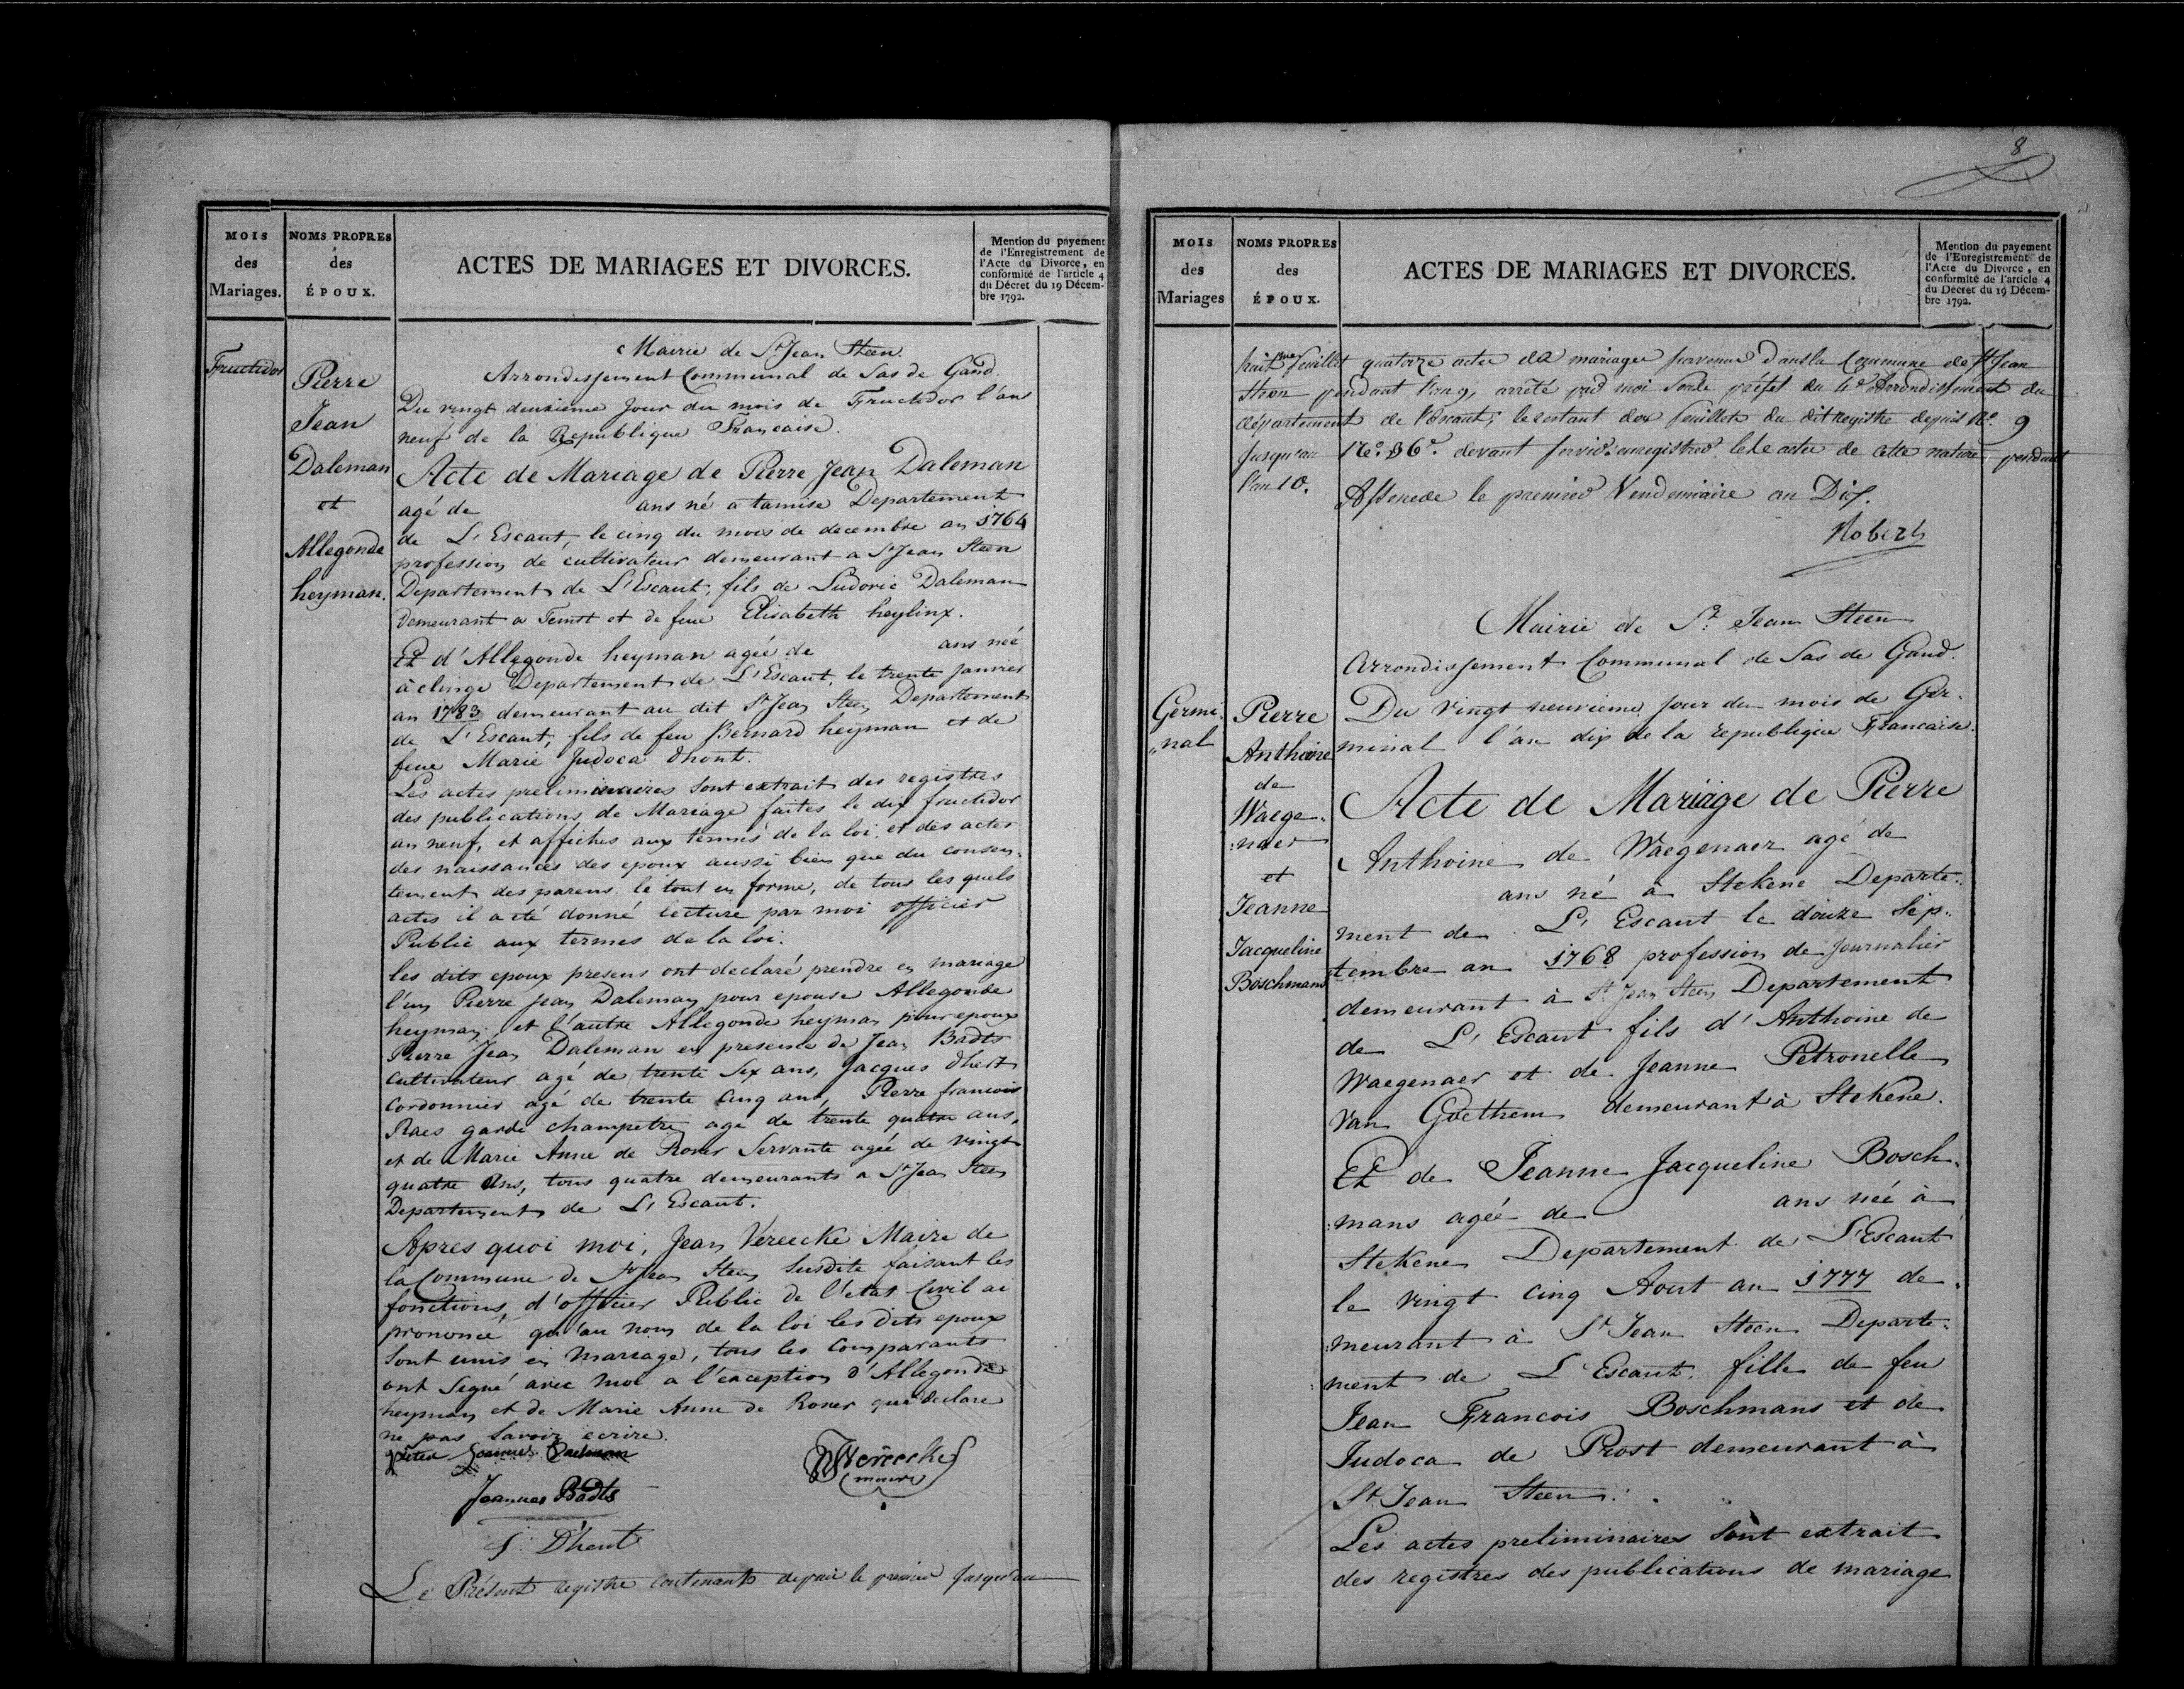 MOIS
des
Mariages.
NOMS PROPRES
des
ÉPOUX.
ACTES DE MARIAGES ET DIVORCES.
Mention du payement
de l'Enregistrement de
l'Acte du Divorce, en
conformité de l'article 4
du Décret du 19 Décem-
bre 1792.
Fructidor
Pierre
Jean
Daleman
et
Allegonde
heyman.
Mairie de St Jean Steen.
Arrondissement Communal de Sas de Gand.
Du vingt deuxieme jour du mois de Fructidor l'an
neuf de la Republique Francaise.
Acte de Mariage de Pierre Jean Daleman
agé de ans né a tamise Departement
de L'Escaut, le cinq du mois de decembre an 1764
profession de cultivateur demeurant a St Jean Steen
Departement de L'Escaut, fils de Ludovic Daleman
demeurant a Temst et de feue Elisabeth heylinx.
Et d'Allegonde heyman agée de ans neé
à clinge Departement de L'Escaut, le trente janvier
an 1783 demeurant au dit St Jean Steen Departement
de L'Escaut, fils de feu Bernard heyman et de
feue Marie Judoca dhont.
Les actes preliminaires sont extrait des registres
des publications de Mariage faites le dix fructidor
an neuf, et affiches aux termes de la loi, et des actes
des naissances des epoux aussi bien que du consen-
tement des parens le tout en forme, de tous les quels
actes il a eté donné lecture par moi officier
Public aux termes de la loi.
les dits epoux presens ont declaré prendre en mariage
l'un Pierre Jean Daleman pour epouse Allegonde
heyman, et l'autre Allegonde heyman pour epoux
Pierre Jean Daleman en presence de Jean Badts
cultivateur agé de trente six ans, Jacques dhert
cordonnier agé de trente cinq ans, Pierre francois
Raes garde champetre agé de trente quatre ans,
et de Marie Anne de Roner Servante agée de vingt
quatre ans, tous quatre demeurants a St Jean Steen
Departement de L'Escaut.
Apres quoi moi, Jean Vereecke Maire de
la Commune de St Jean Steen susdite faisant les
fonctions d'officier Public de l'etat Civil ai
prononcé qu'au nom de la loi les dits epoux
sont unis en mariage, tous les comparants
ont signé avec moi a l'exception d'Allegonde
heyman et de Marie Anne de Roner qui declare
ne pas savoir ecrire.
Pieter Joannes Daelman
Vereecke
maire
Joannes Badts
J: D'hert
Le Présent registre contenant depuis le premier jusqu'au
8
MOIS
des
Mariages
NOMS PROPRES
des
ÉPOUX.
ACTES DE MARIAGES ET DIVORCES.
Mention du payement
de l'Enregistrement de
l'Acte du Divorce, en
conformité de l'article 4
du Décret du 19 Décem-
bre 1792.
huitme feuillet quatorze actes de mariages survenus dans la Commune de St Jean
Steen pendant l'an 9, arrêté par moi Sous préfet du 4e Arrondissement du
département de l'Escaut; le restant des feuillets du dit registre depuis No. 9
jusqu'au No. 36. devant servir enregistrer les actes de cette nature, pendant
l'an 10.
Assenede le premier Vendemiaire an Dix.
Robert
Germi-
nal
Pierre
Anthoine
de
Waege-
naer
et
Jeanne
Jacqueline
Boschmans
Mairie de St: Jean Steen
Arrondissement Communal de Sas de Gand.
Du vingt neuvieme jour du mois de Ger-
minal l'an dix de la republique Francaise.
Acte de Mariage de Pierre
Anthoine de Waegenaer agé de
ans né à Stekene Departe-
ment de L'Escaut le douze Sep-
tembre an 1768 profession de journalier
demeurant à St Jean Steen Departement
de L'Escaut fils d'Anthoine de
Waegenaer et de Jeanne Petronelle
Van Goethem demeurant à Stekene.
Et de Jeanne Jacqueline Bosch-
mans agée de ans neé à
Stekene Departement de L'Escaut
le vingt cinq Aout an 1777 de-
meurant à St Jean Steen Departe-
ment de L'Escaut, fille de feu
Jean Francois Boschmans et de
Judoca de Prost demeurant à
St Jean Steen.
Les actes preliminaires sont extrait
des registres des publications de mariage